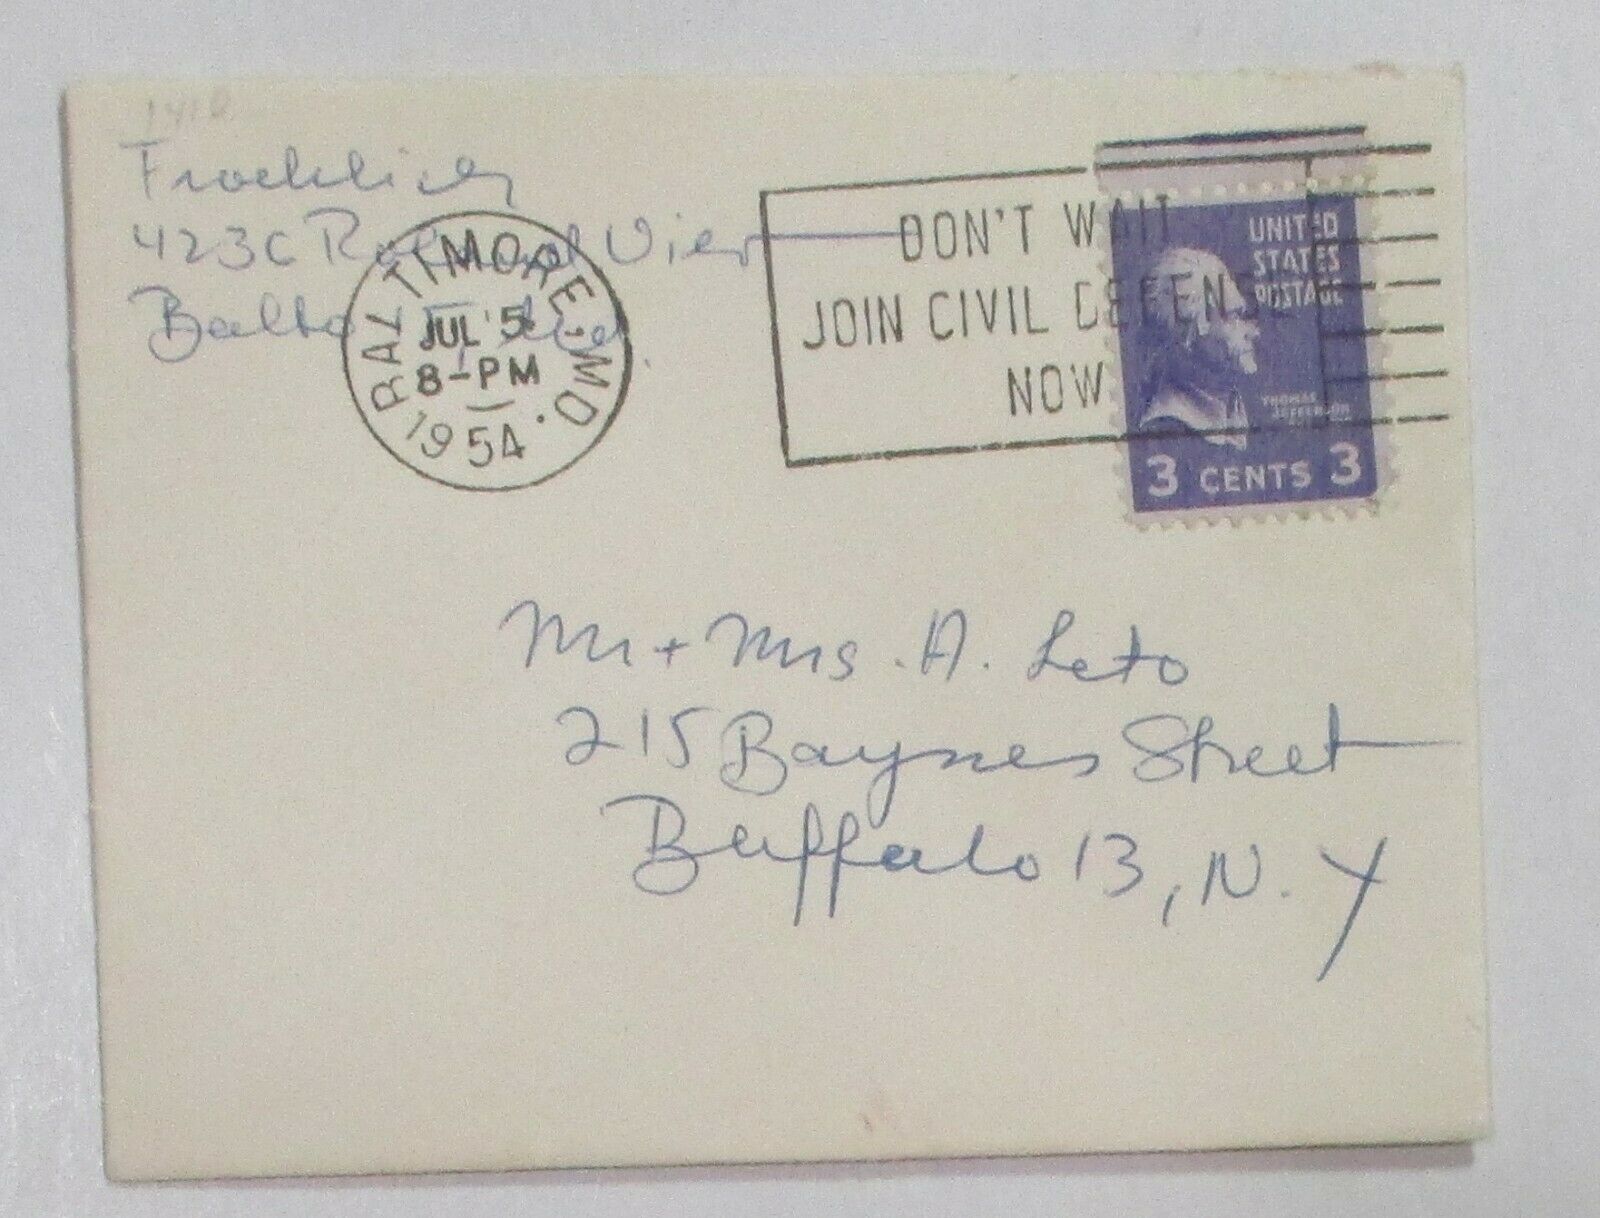 423C View
Balto Md.
BALTIMORE, MD.
JUL 5
8-PM
1954
DON'T WAIT
JOIN CIVIL DEFENSE
NOW
UNITED
STATES
POSTAGE
THOMAS
JEFFERSON
3 CENTS 3
Mr + Mrs. A. Leto
215 Baynes Street
Buffalo 13, N.Y